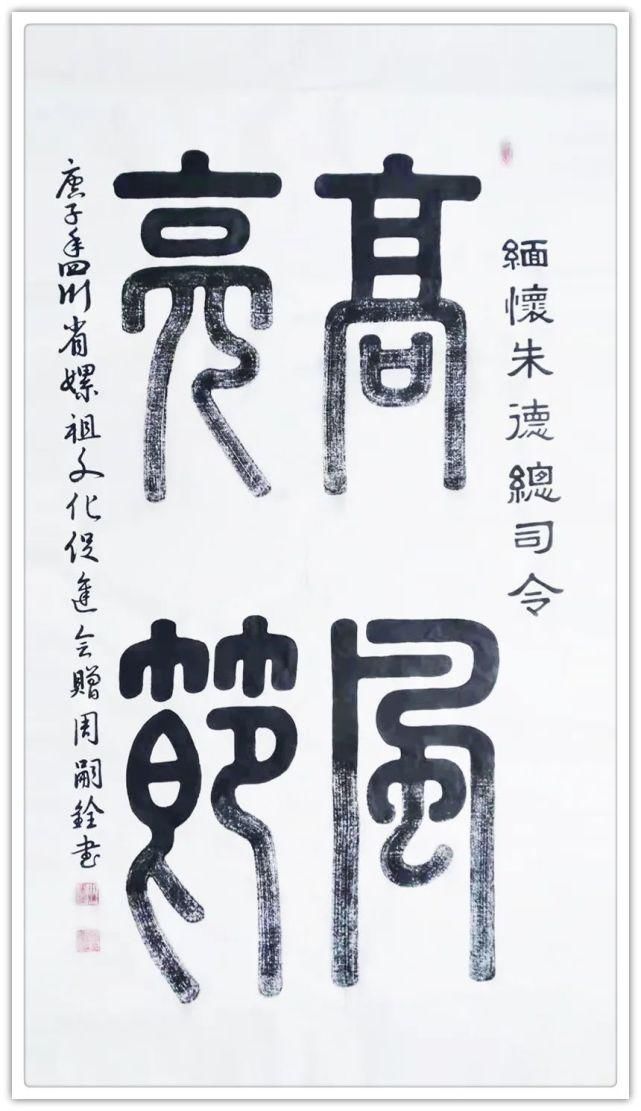 緬懷朱德總司令
高風
亮節
庚子年四川省嫘祖文化促進会贈周嗣銓书